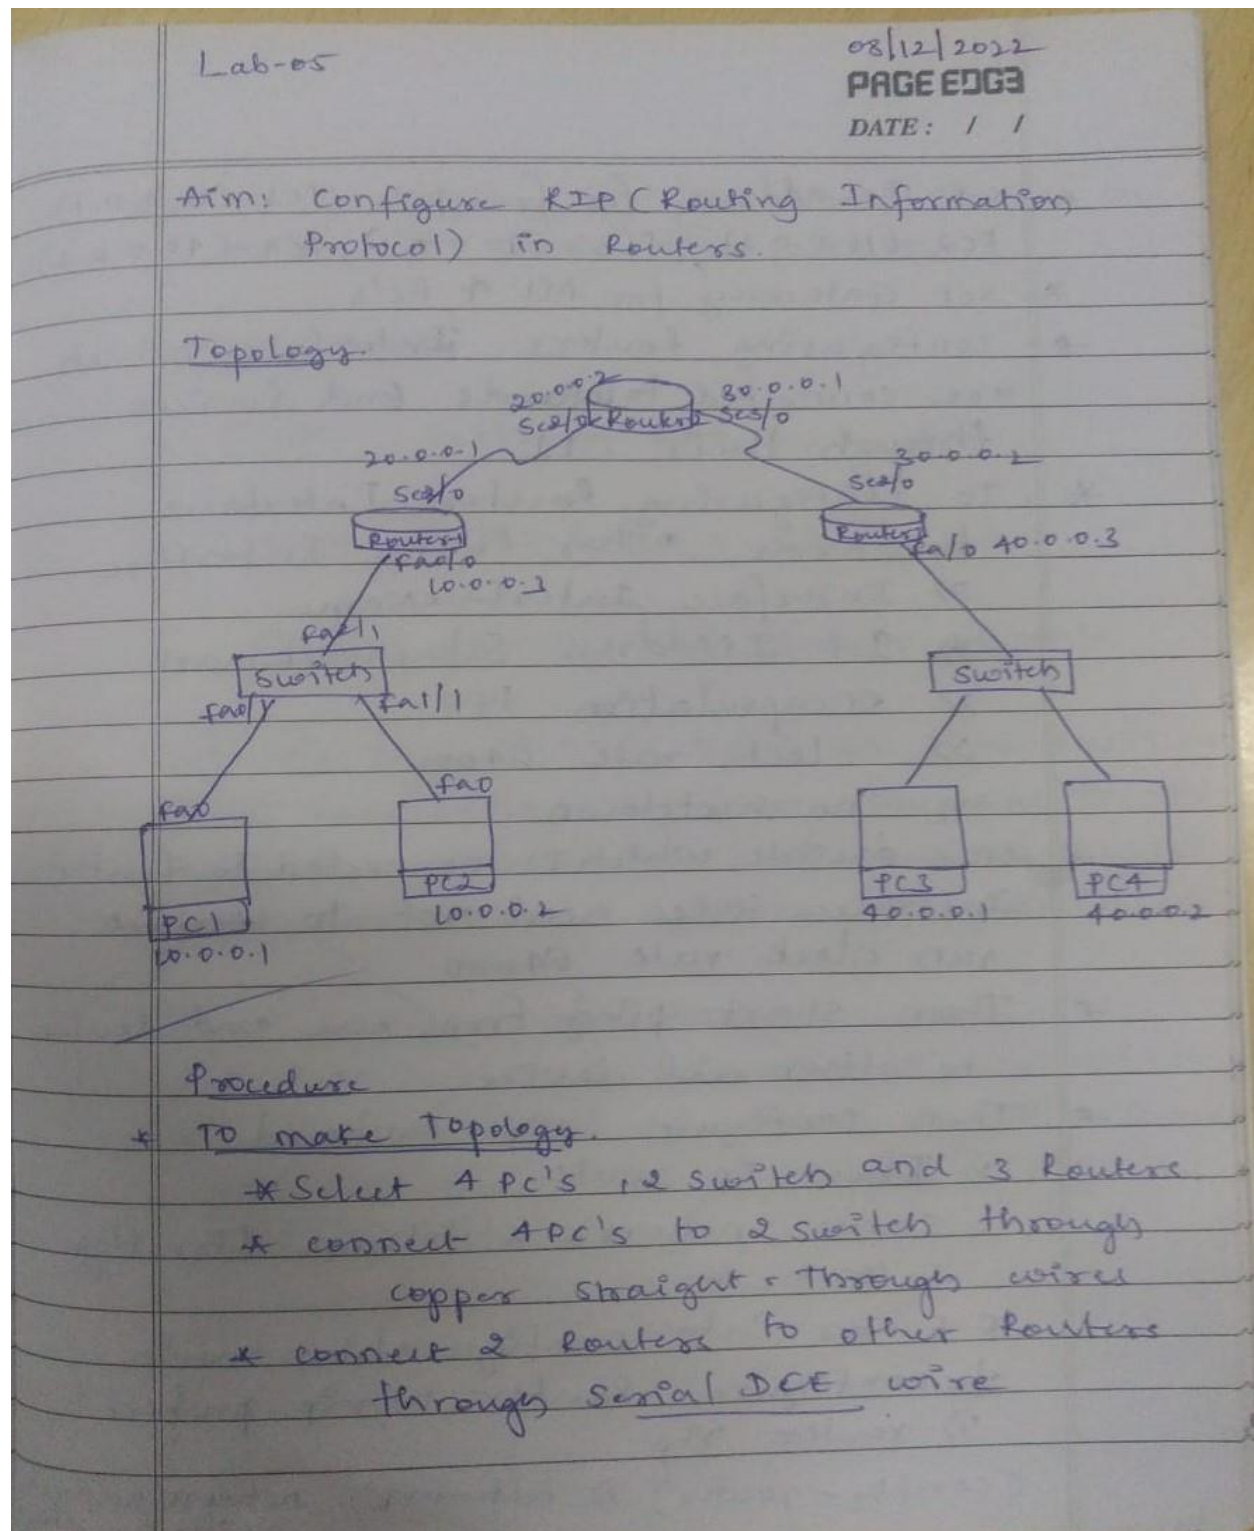 Lab-05
08/12/2022
PAGE EDGE
DATE: / /
Aim: Configure RIP (Routing Information
Protocol) in Routers.
Topology.
20.0.0.2
30.0.0.1
Se2/0
Router2
Se3/0
20.0.0.1
30.0.0.2
Se2/0
Se2/0
Router1
Router3
fa0/0
fa/0 40.0.0.3
10.0.0.3
Switch
Switch
fa0/1
fa1/1
fa0
fa0
PC2
PC3
PC4
PC1
10.0.0.2
40.0.0.1
40.0.0.2
10.0.0.1
Procedure
* To make Topology.
* Select 4 PC's, 2 switch and 3 Routers
* connect 4PC's to 2 switch through
copper straight-Through wires
* connect 2 Routers to other Routers
through Serial DCE wire